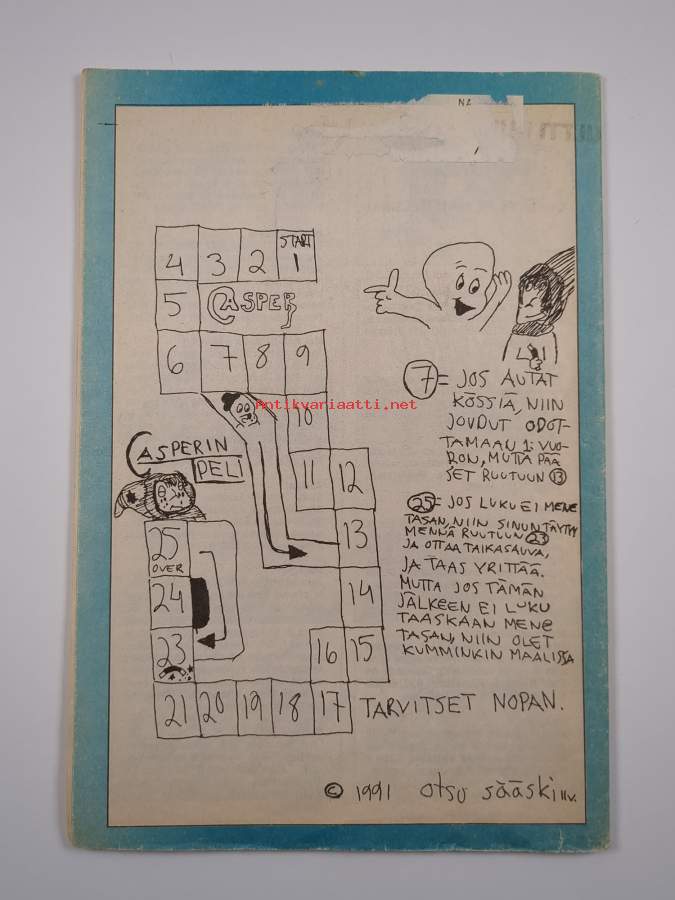 N2
START
4 3 2 1
5 CASPER
6 7 8 9
Antikvariaatti.net
10
CASPERIN
PELI
11 12
25
OVER
13
24
14
23
16 15
21 20 19 18 17
7 = JOS AUTAT
KÖSSIÄ, NIIN
JOUDUT ODOT-
TAMAAN 1: VUO-
RON, MUTTA PÄÄ
SET RUUTUUN 13
25 = JOS LUKU EI MENE
TASAN, NIIN SINUN TÄYTYY
MENNÄ RUUTUUN 23
JA OTTAA TAIKASAUVA,
JA TAAS YRITTÄÄ.
MUTTA JOS TÄMÄN
JÄLKEEN EI LUKU
TAASKAAN MENE
TASAN, NIIN OLET
KUMMINKIN MAALISSA
TARVITSET NOPAN.
© 1991 OTSO SÄÄSKI 11V.